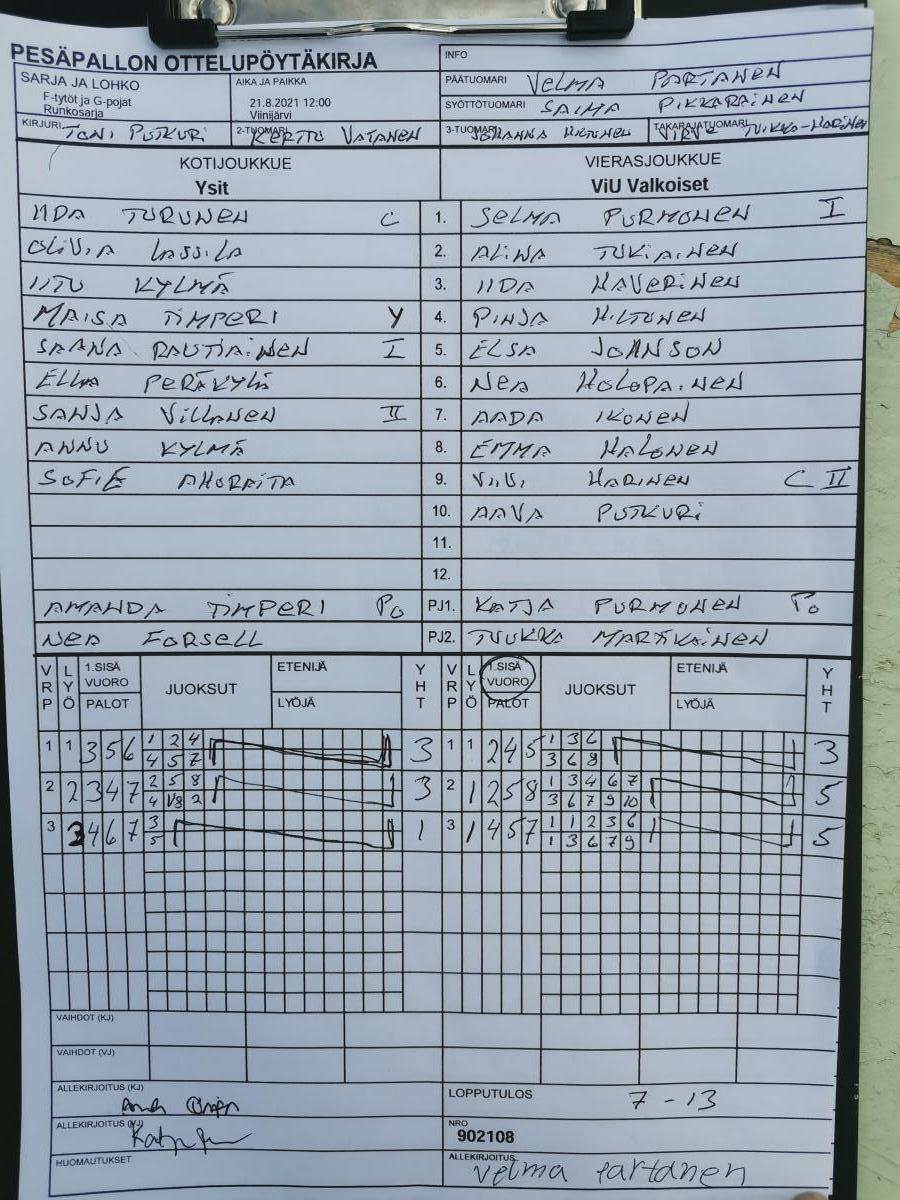 PESÄPALLON OTTELUPÖYTÄKIRJA
INFO
SARJA JA LOHKO
F-tytöt ja G-pojat
Runkosarja
AIKA JA PAIKKA
21.8.2021 12:00
Viinijärvi
PÄÄTUOMARI VELMA PARTANEN
SYÖTTÖTUOMARI SAIMA PIKKARAINEN
KIRJURI TONI PUTKURI
2-TUOMARI KERTTU VATANEN
3-TUOMARI JOHANNA HILTUNEN
TAKARAJATUOMARI VIRVE TUIKKA-HARINEN
KOTIJOUKKUE
Ysit
VIERASJOUKKUE
ViU Valkoiset
IIDA TURUNEN C 1. SELMA PURMONEN I
OLIVIA LASSILA 2. ALINA TUKIAINEN
IITU KYLMÄ 3. IIDA HAVERINEN
MAISA TIMPERI Y 4. PINJA HILTUNEN
SAANA RAUTIAINEN I 5. ELSA JOHNSON
ELLA PERÄKYLÄ 6. NEA HOLOPAINEN
SANJA VILLANEN II 7. AADA IKONEN
ANNU KYLMÄ 8. EMMA HALONEN
SOFIE AHORAITA 9. VIIVI HARINEN C II
10. AAVA PUTKURI
11.
12.
AMANDA TIMPERI Po PJ1. KATJA PURMONEN Po
NEA FORSELL PJ2. TUUKKA MARTIKAINEN
VRP LYÖ 1.SISÄ VUORO PALOT JUOKSUT ETENIJÄ LYÖJÄ YHT VRP LYÖ 1.SISÄ VUORO PALOT JUOKSUT ETENIJÄ LYÖJÄ YHT
1 1 3 5 6 1 2 4 3 1 1 2 4 5 1 3 6 3
4 5 7 3 6 8
2 2 3 4 7 2 5 8 3 2 1 2 5 8 1 3 4 6 7 5
4 V8 2 3 6 7 9 10
3 3 4 6 7 3 1 3 1 4 5 7 1 1 2 3 6 5
5 1 3 6 7 9
VAIHDOT (KJ)
VAIHDOT (VJ)
ALLEKIRJOITUS (KJ)
LOPPUTULOS 7 - 13
ALLEKIRJOITUS (VJ)
NRO
902108
HUOMAUTUKSET
ALLEKIRJOITUS Velma Partanen